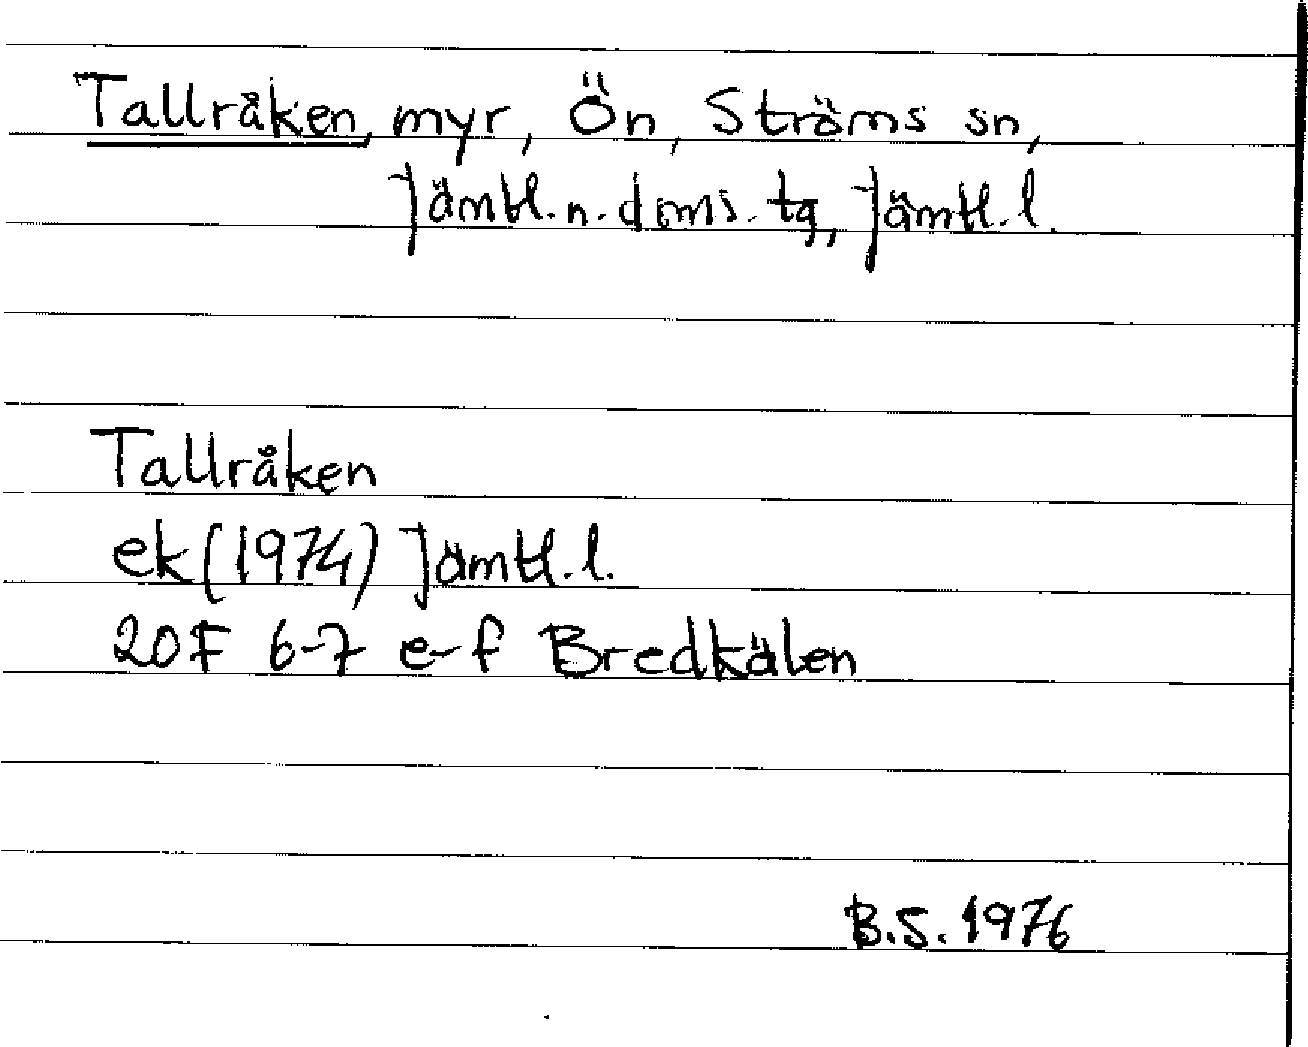 Tallråken, myr, Ön, Ströms sn,
Jämtl. n. doms. tg, Jämtl. l.
Tallråken
ek (1974) Jämtl. l.
20F 6-7 e-f Bredkälen
B.S. 1976